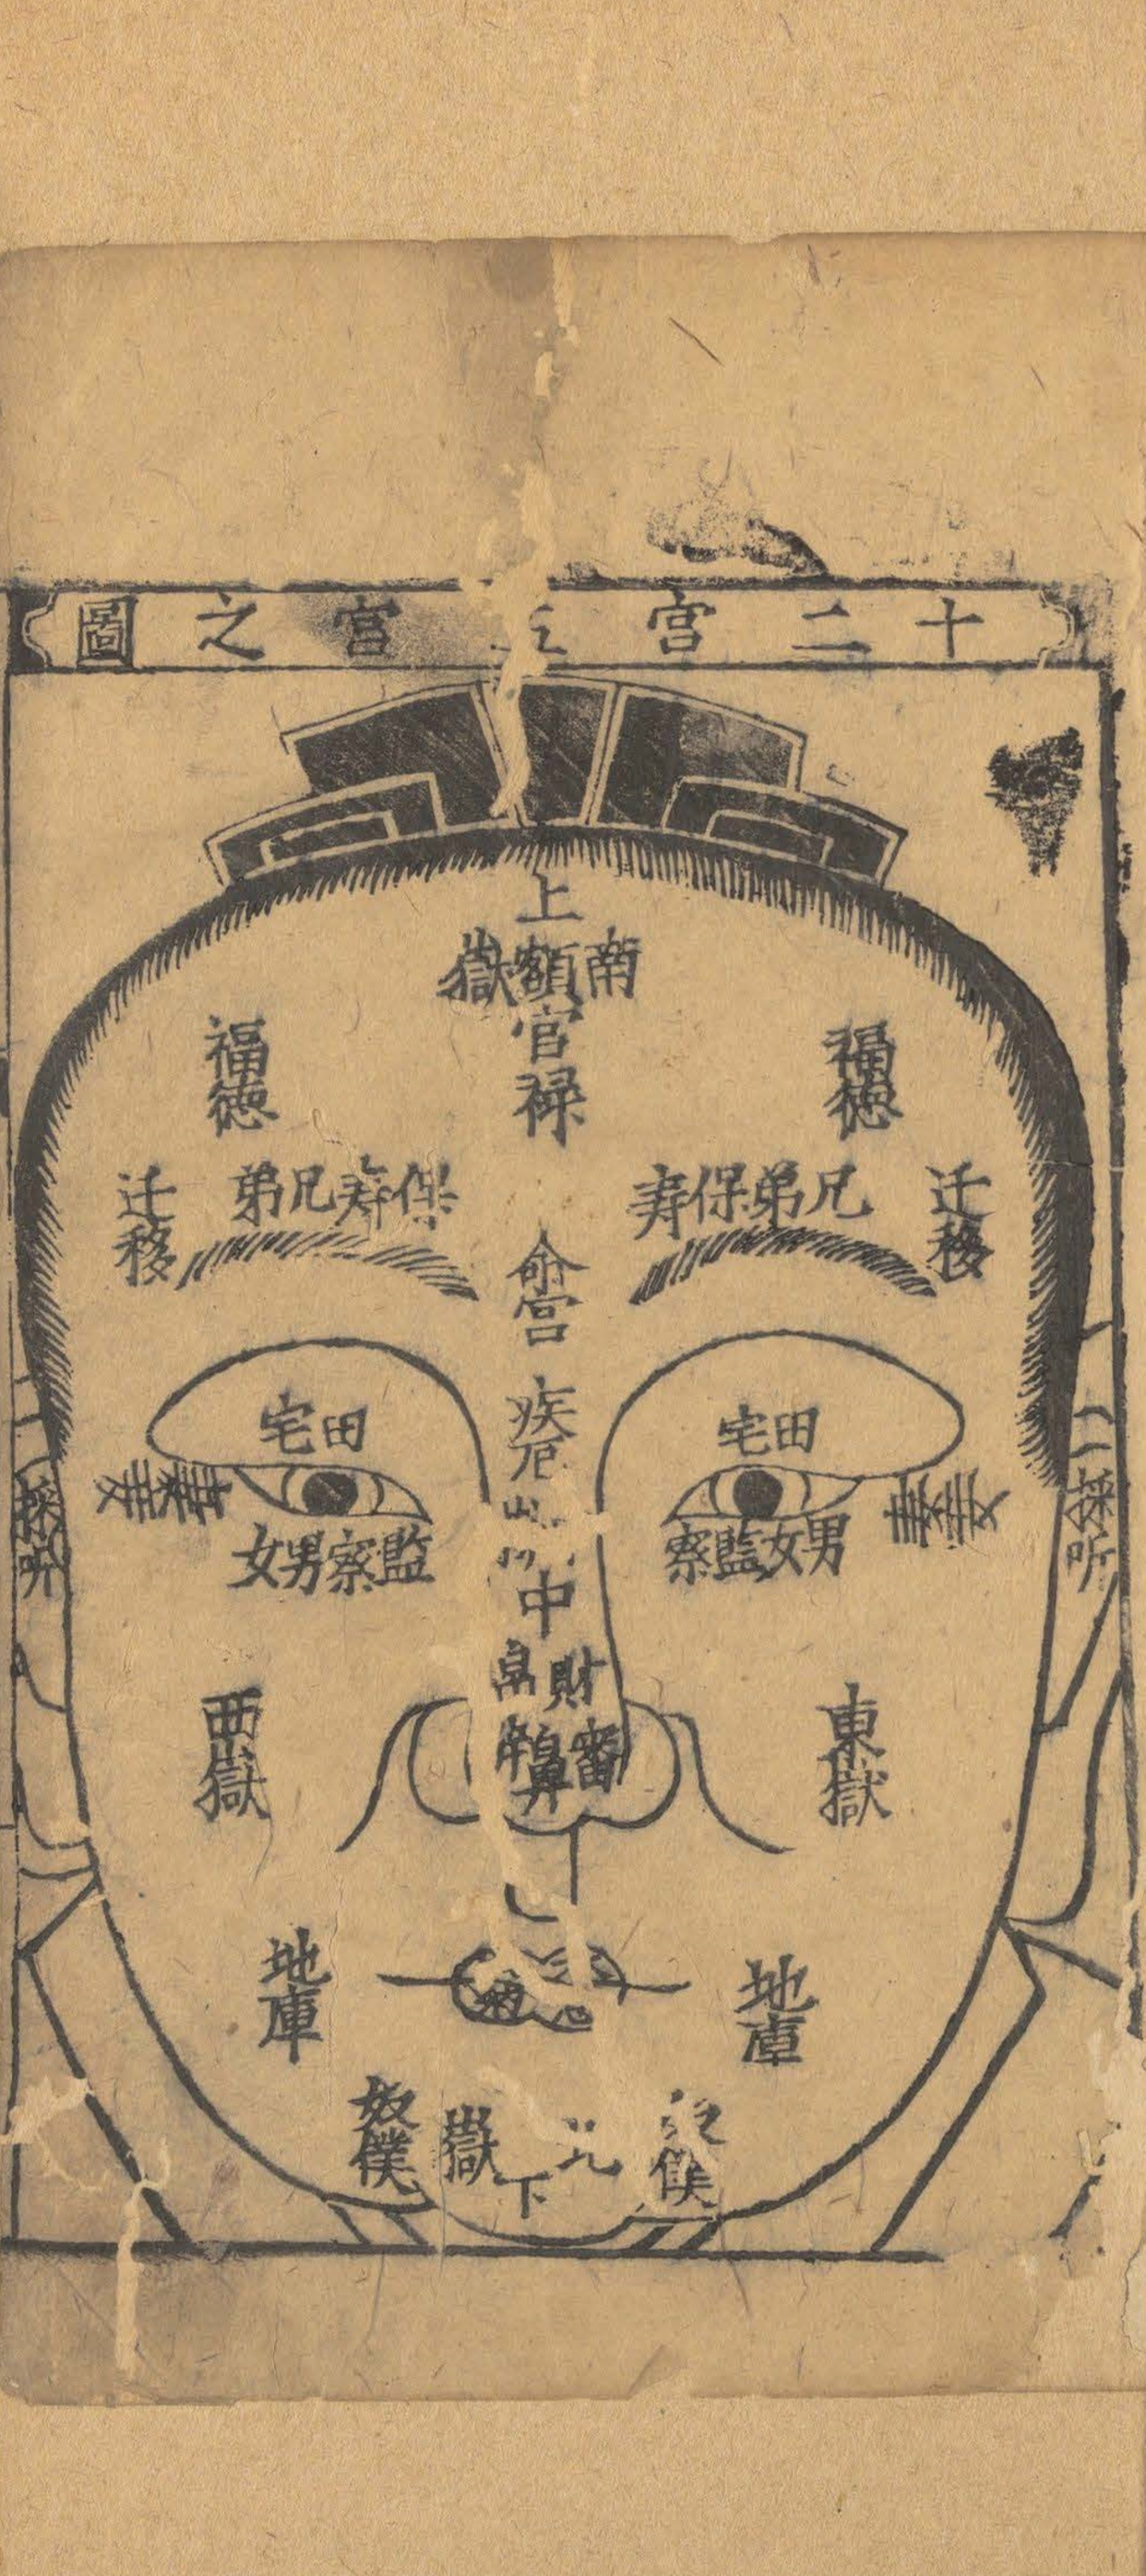 十二宮五官之圖
上
南額嶽
官禄
福德
福德
迁移
兄弟保寿
保寿兄弟
迁移
命宮
田宅
田宅
疾厄
妻妾
妻妾
採听
採听
男女監察
監察男女
中
財帛
審鼻
東嶽
西嶽
地庫
地庫
奴僕
嶽
下
奴僕